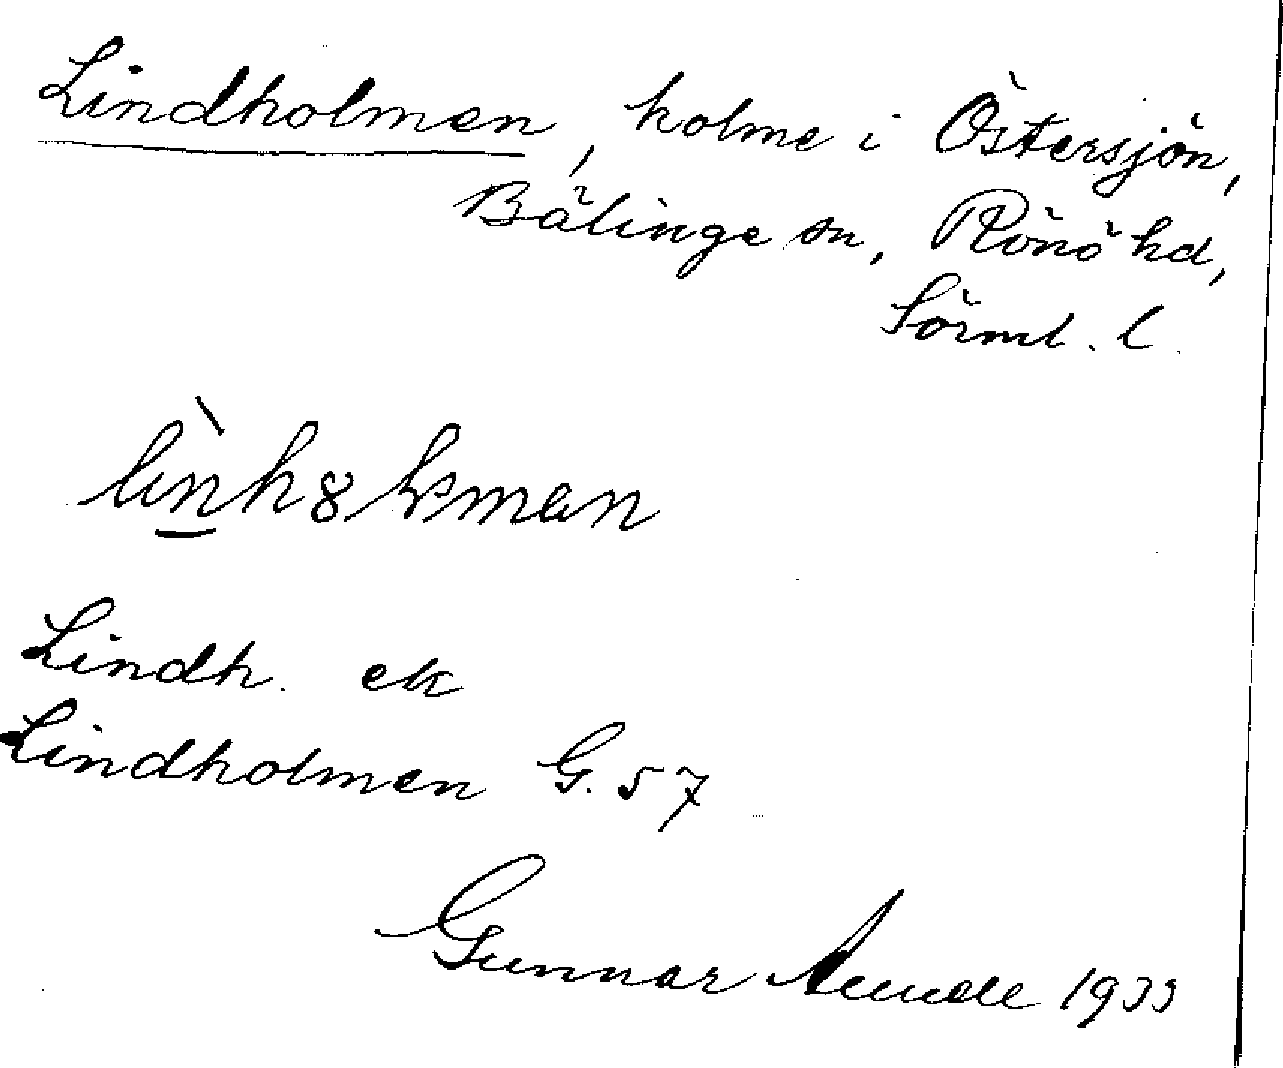 Lindholmen, holme i Östersjön,
Bälinge sn, Rönö hd,
Sörml. l.
Lindh. ek
Lindholmen G. 57
Gunnar 1933